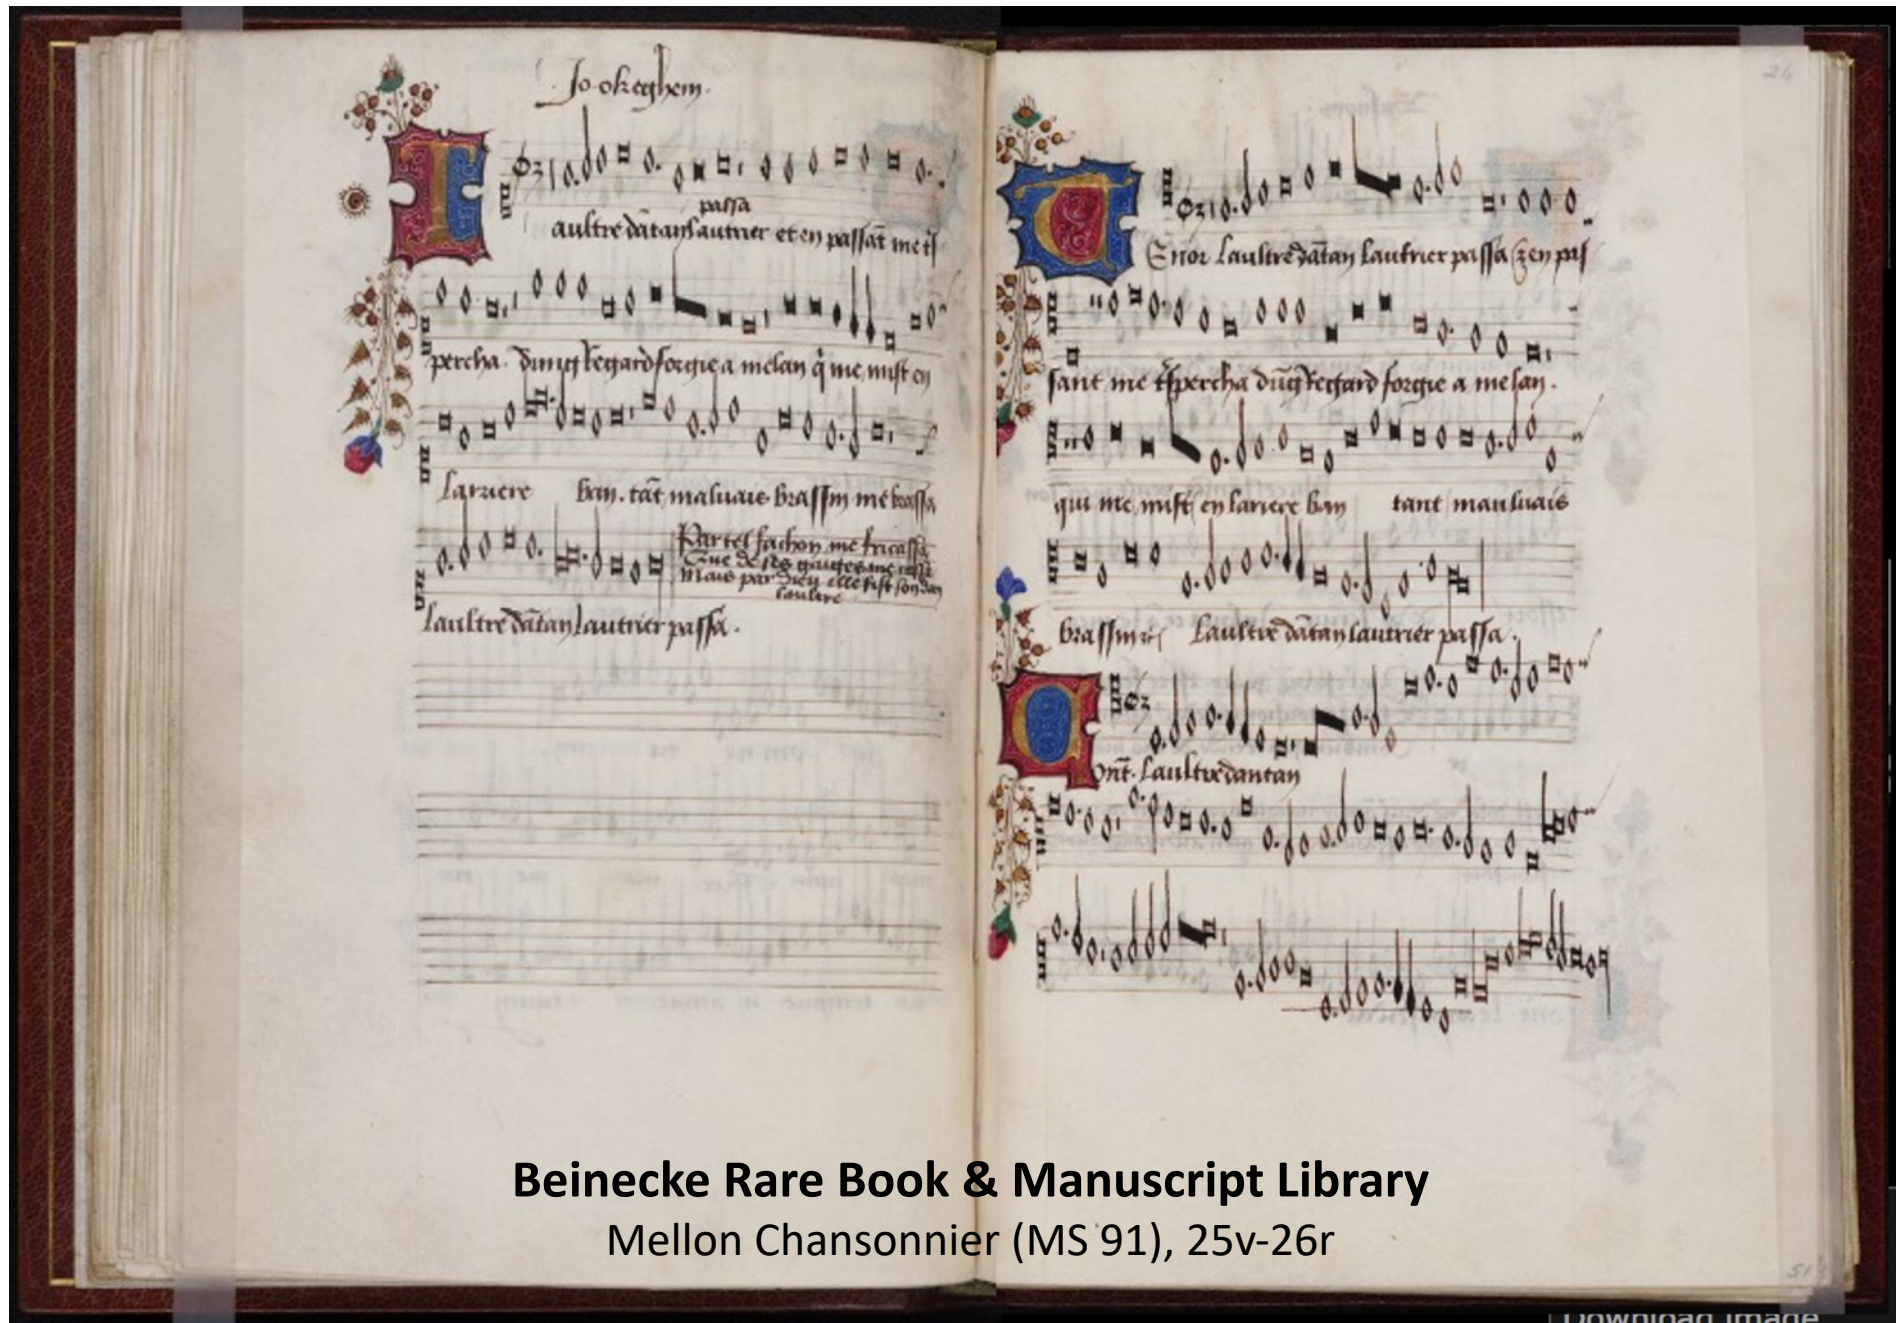 Jo. okeghem.
passa
L aultre dātan lautrier et en passāt me tͬs
percha. dung regard forgie a melan q̇ me mist en
larriere ban. tāt maluais brassin me brassa
Par tel fachon me fricassa
Que de ses gaiges me cassa
Mais par dieu elle fist son dan
laultre
laultre dātan lautrier passa.
26
T Enor Laultre dātan lautrier passa & en pas
sant me tͬspercha dūg regard forgie a melan.
qui me mist en lariere ban tant mauluais
brassin Laultre dātan lautrier passa.
C ont̄. Laultre dantan
51
Beinecke Rare Book & Manuscript Library
Mellon Chansonnier (MS 91), 25v-26r
Download image